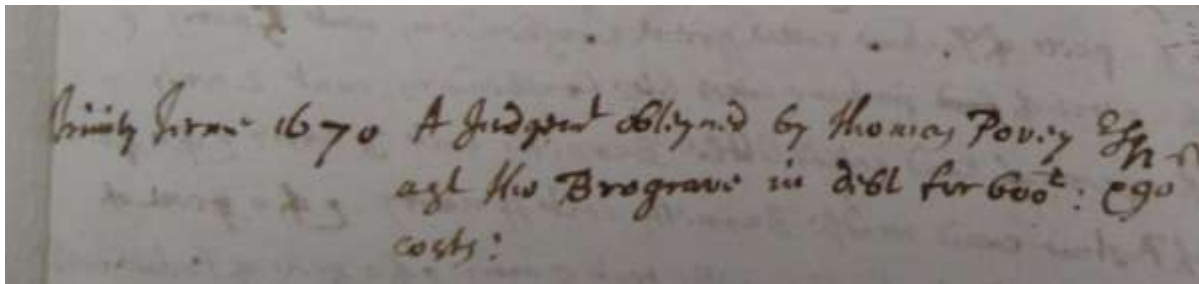 Trinity Terme 1670 A Judgemt obteyned by Thomas Povey Esqr
agt Tho Brograve in debt for 600l: &
costs: